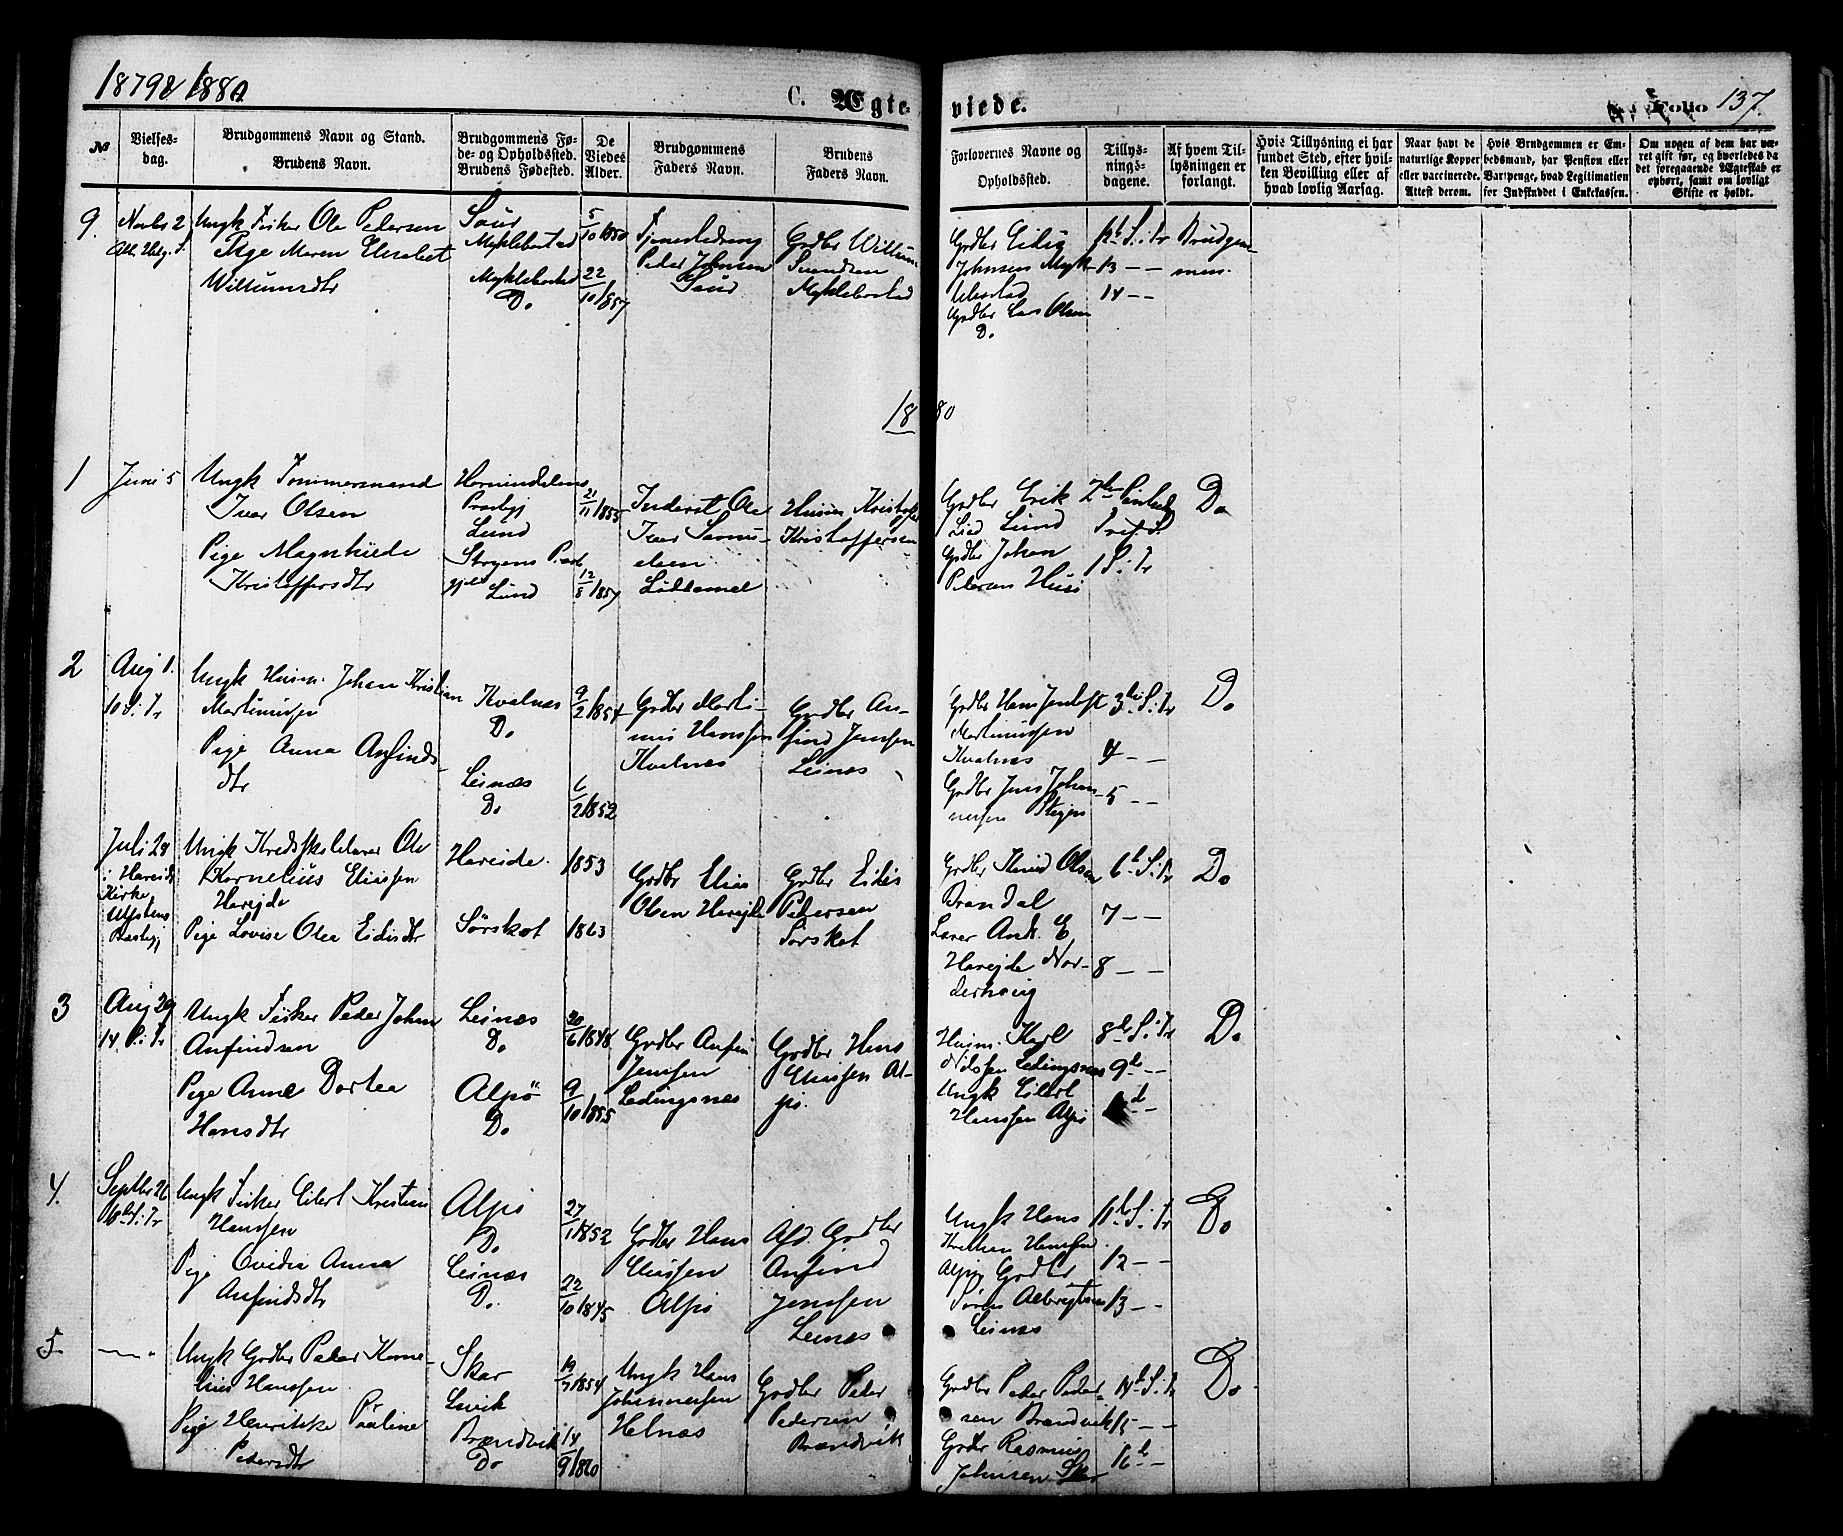 1879 & 1880
C. Ægte-
viede.
Folio 137.
№
Vielses-
dag.
Brudgommens Navn og Stand.
Brudens Navn.
Brudgommens Fø-
de- og Opholdssted.
Brudens Fødested.
De
Viedes
Alder.
Brudgommens
Faders Navn.
Brudens
Faders Navn.
Forlovernes Navne og
Opholdssted.
Tillys-
nings-
dagene.
Af hvem Til-
lysningen er
forlangt.
Hvis Tillysning ei har
fundet Sted, efter hvil-
ken Bevilling eller af
hvad lovlig Aarsag.
Naar havt de
naturlige Kopper
eller vaccinerede.
Attest derom.
Hvis Brudgommen er Em-
bedsmand, har Pension eller
Vartpenge, hvad Legitimation
for Indskuddet i Enkekassen.
Om nogen af dem har væ-
ret gift før, og hvorledes da
det foregaaende Ægteskab er
ophørt, samt om lovligt
Skifte er holdt.
9.
Novbr 2
All. Helg. F.
Ungk Fisker Ole Pedersen
Pige Maren Elisabet
Willumsdtr
Myklebostad
Myklebostad
Do
5/10 1850
22/10 1857
Peder Johnsen
Gadbr Willum
Svendsen
Myklebostad
Gadbr Eilig
Johnsen Myk-
lebostad
Gadbr Lars Olsen
Do
S. i Tr
13 – –
14 – –
Brudgom-
men.
1880
1
Juni 5
Ungk Tømmermand
Ivar Olsen
Pige Magnhilde
Kristoffersdtr
Hornindalens
Præstgj
Lund
Stryens Præst
gjeld
Lund
21/11 1855
12/8 1857
Inderst Ole
Ivar Samu-
elsen
Husm Kristoffer
Kristoffersen
Gadbr Erik
Lund
Gadbr Johan
Petersen
1 S. i Tr
Do
2
Aug 1.
10 S. i Tr
Ungk Husm. Johan Kristian
Martinussen
Pige Anna Anfinds-
dtr
Kvalnæs
Do
Leinæs
Do
9/2 1854
6/2 1852
Gadbr Marti-
nus Hanssen
Kvalnæs
Gadbr An-
find Jenssen
Leinæs
Gadbr Hans Jentoft
Martinussen
Kvalnæs
Gadbr Jens Johan-
nessen
3die S. i Tr
4 – –
5 – –
Do
Juli 24
i Hareids
Kirke
Ulfstens
Præstgj
Ungk Kredsskolelærer Ole
Kornelius Eliassen
Hareide
Pige Lovise Olea Eidisdtr
Hareide.
Sörskot
1853
1863
Gadbr Elias
Olsen Hareide
Gadbr Eidis
Petersen
Sörskot
Gadbr Knud Olsen
Brandal
Lærer And. E.
Hareide Nor-
derhoug
6te S. i Tr
7 – –
8 – –
Do
3
Aug 29
14. S. i Tr
Ungk Fisker Peder Johan
Anfindsen
Pige Anne Dortea
Hansdtr
Leinæs
Do
Alpö
Do
20/6 1848
9/10 1855
Gadbr Anfin
Jenssen
Ledingsnæs
Gadbr Hans
Eliassen Al-
pö.
Husm. Karl
Nilssen Ledingsnæs
Ungk Eilert
Hanssen Alpö
8de S. i Tr
9de – –
Do
4.
Septbr 26
18de S. i Tr
Ungk Fisker Eilert Kristian
Hanssen
Pige Ovidia Anna
Anfindsdtr
Alpö
Do
Leinæs
Do
27/1 1852
22/10 1845
Gadbr Hans
Eliassen
Alpö
Afd. Gadbr
Anfind
Jenssen
Leinæs
Ungk Hans
Kristian Hanssen
Alpö Gadbr
Sören Albrigtsen
Leinæs
11te S. i Tr
12 – –
13 – –
Do
5.
Ungk Gadbr Peder Korne-
lius Hanssen
Pige Henrikke Pauline
Pedersdtr
Skar
Lervik
Brændvik
Do
19/7 1854
14/9 1860
Ungk Hans
Johannessen
Helnæs
Gadbr Peder
Pedersen
Brændvik
Gadbr Peder Peder-
sen Brændvik
Gadbr Rasmus
Johnsen Skar
14de S. i Tr
15 – –
16de –
Do